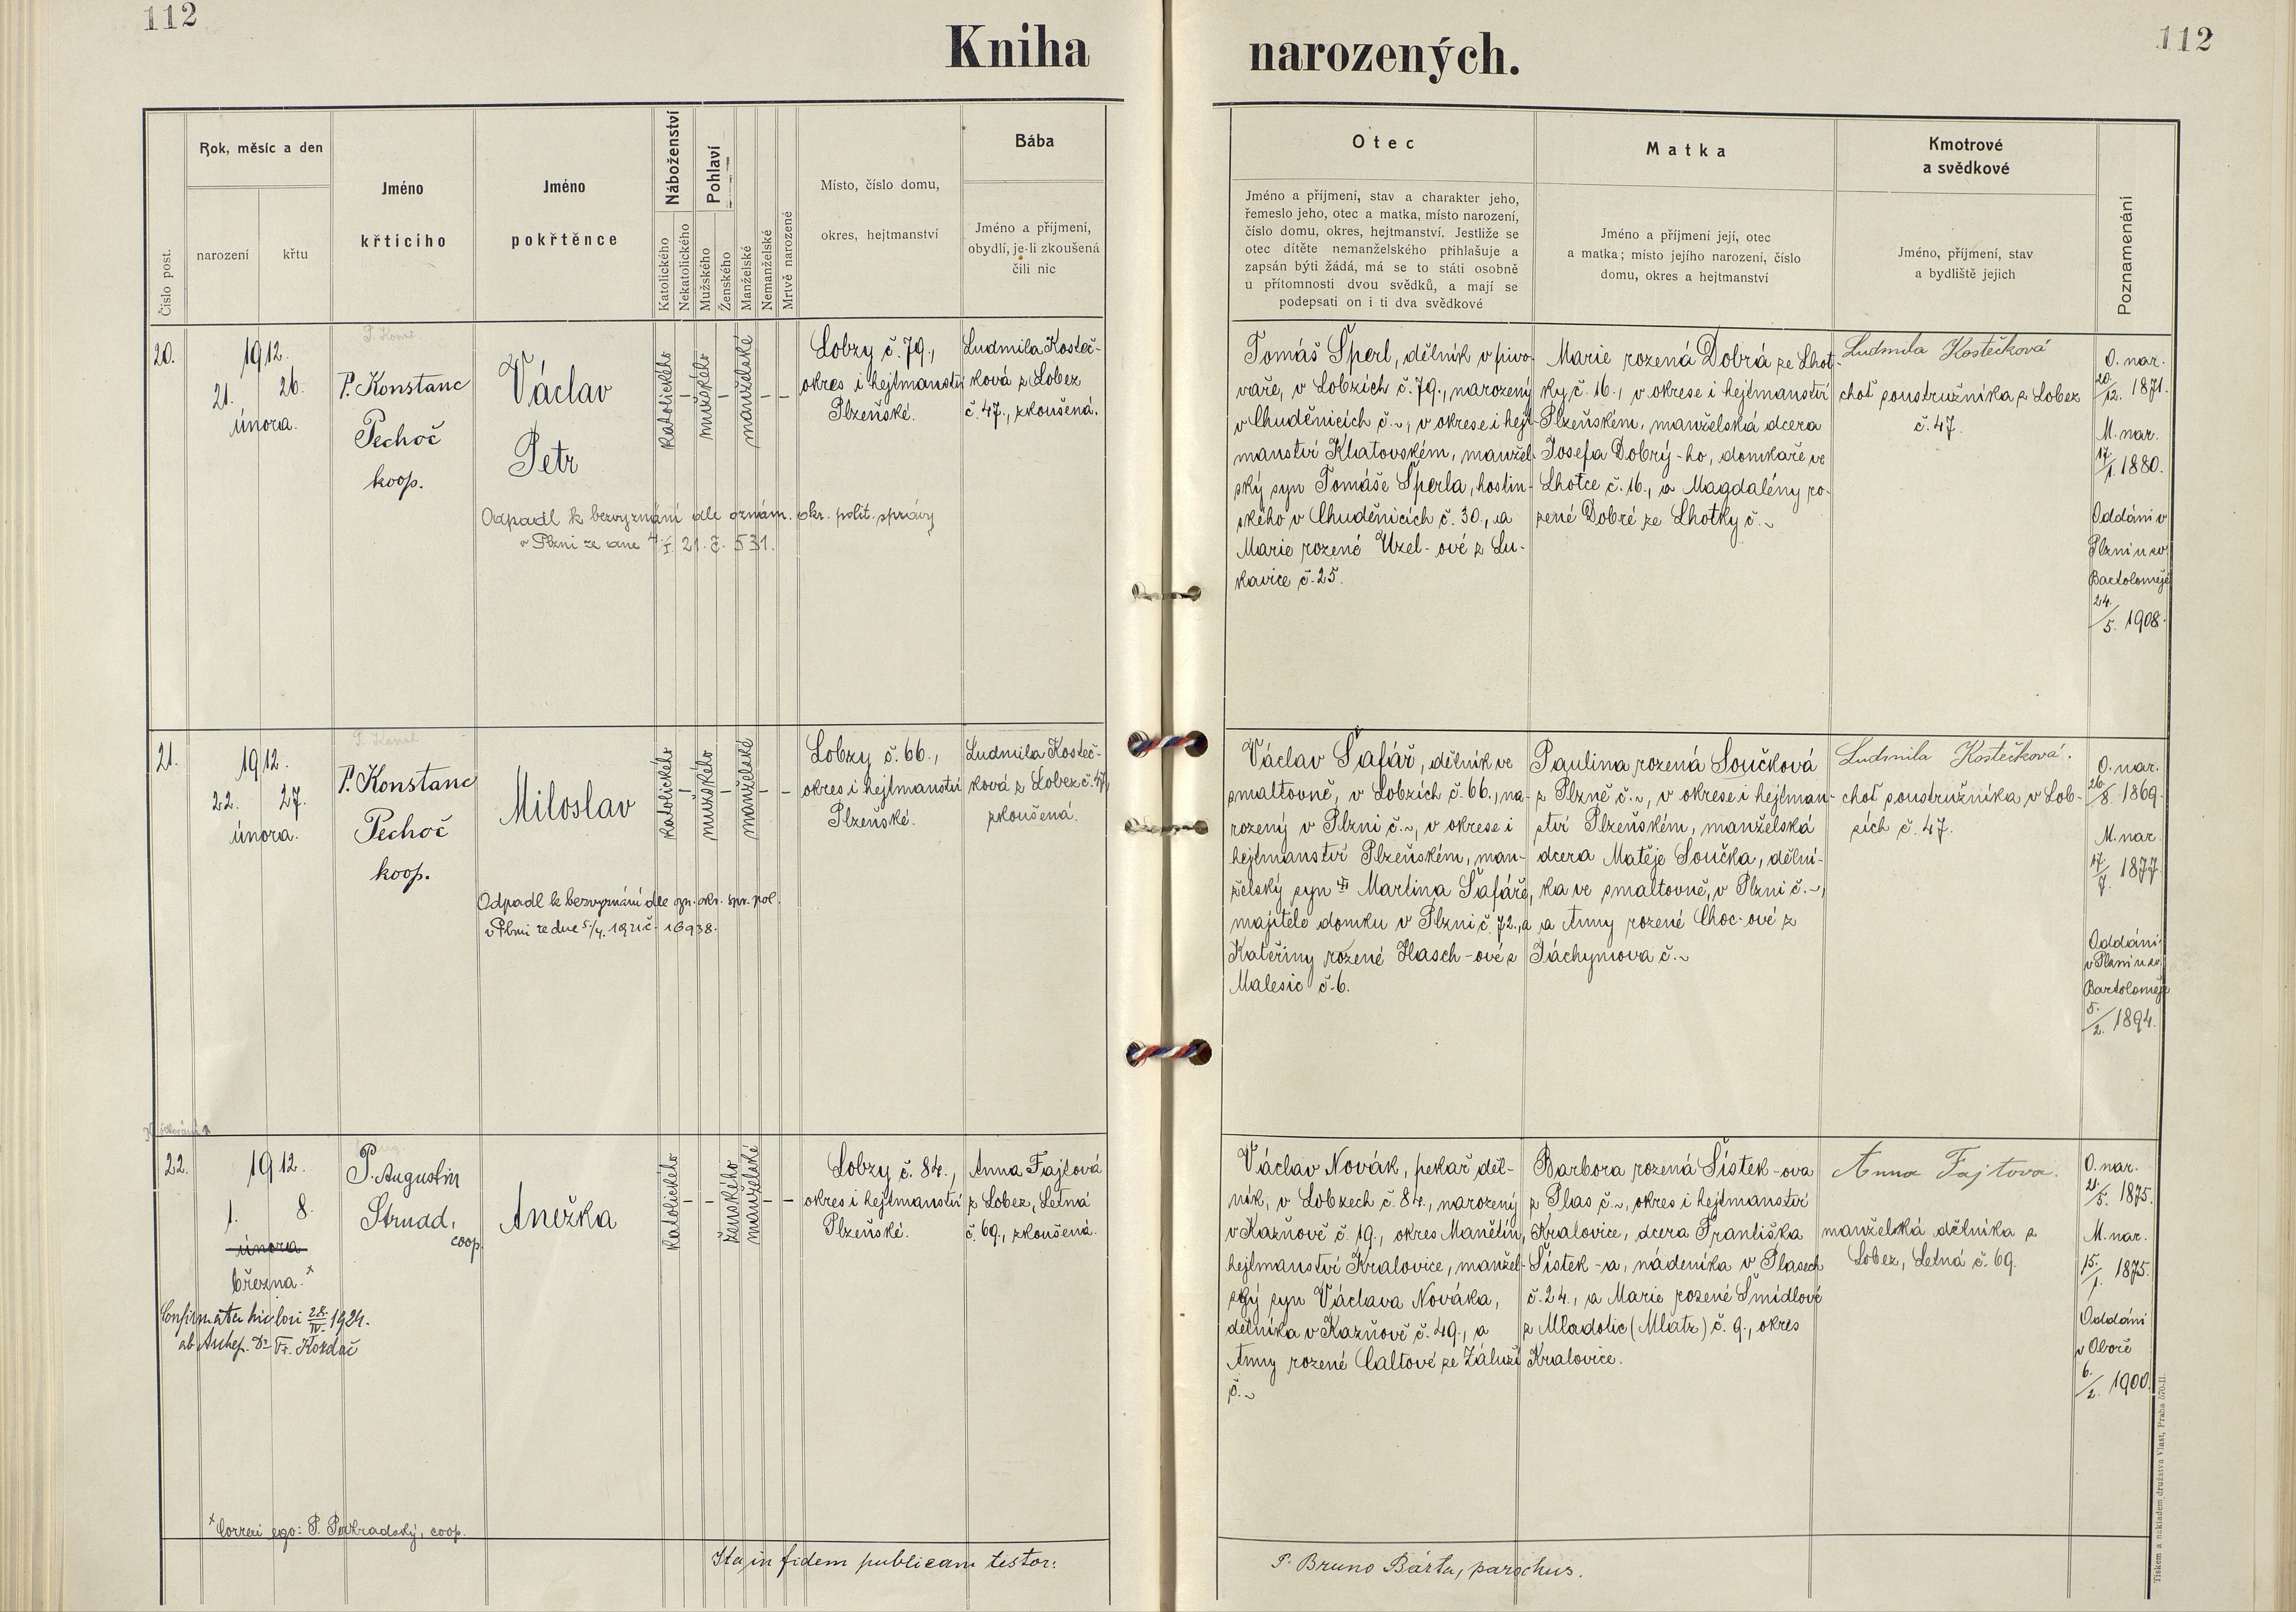 112
Kniha narozených.
112
Číslo post.
Rok, měsíc a den
narození
křtu
Jméno
křtícího
Jméno
pokřtěnce
Náboženství
Katolického
Nekatolického
Pohlaví
Mužského
Ženského
Manželské
Nemanželské
Mrtvě narozené
Místo, číslo domu,
okres, hejtmanství
Bába
Jméno a příjmení,
obydlí, je-li zkoušená
čili nic
Otec
Jméno a příjmení, stav a charakter jeho,
řemeslo jeho, otec a matka, místo narození,
číslo domu, okres, hejtmanství. Jestliže se
otec dítěte nemanželského přihlašuje a
zapsán býti žádá, má se to státi osobně
u přítomnosti dvou svědků, a mají se
podepsati on i ti dva svědkové
Matka
Jméno a příjmení její, otec
a matka; místo jejího narození, číslo
domu, okres a hejtmanství
Kmotrové
a svědkové
Jméno, příjmení, stav
a bydliště jejich
Poznamenání
20.
1912.
21. 26.
února.
P. Konstanc
Pechoč
koop.
Václav
Petr
Odpadl k bezvyznání dle oznám. okr. polit. správy
v Plzni ze dne 4/I. 21. č. 531.
katolického
–
mužského
–
manželské
–
–
Lobzy č. 79.,
okres i hejtmanství
Plzeňské.
Ludmila Kosteč-
ková z Lobez
č. 47., zkoušená.
Tomáš Šperl, dělník v pivo-
vaře, v Lobzích č. 79., narozený
v Chuděnicích č. ~, v okrese i hejt-
manství Klatovském, manžel-
ský syn Tomáše Šperla, hostin-
ského v Chuděnicích č. 30., a
Marie rozené Uzel-ové z Lu-
kavice č. 25.
Marie rozená Dobrá ze Lhot-
ky č. 16., v okrese i hejtmanství
Plzeňském, manželská dcera
Josefa Dobrý-ho, domkaře ve
Lhotce č. 16., a Magdalény ro-
zené Dobré ze Lhotky č. ~
Ludmila Kostečková
choť soustružníka z Lobez
č. 47.
O. nar.
20./12. 1871.
M. nar.
17./1. 1880.
Oddáni v
Plzni u sv.
Bartoloměje
24./5. 1908.
21.
1912.
22. 27.
února.
P. Konstanc
Pechoč
koop.
Miloslav
Odpadl k bezvyznání dle ozn. okr. spr. pol.
v Plzni ze dne 5/4. 1921 č. 16938.
katolického
–
mužského
–
manželské
–
–
Lobzy č. 66.,
okres i hejtmanství
Plzeňské.
Ludmila Kosteč-
ková z Lobez č. 47,
zkoušená.
Václav Šafář, dělník ve
smaltovně, v Lobzích č. 66., na-
rozený v Plzni č. ~, v okrese i
hejtmanství Plzeňském, man-
želský syn Martina Šafáře,
majitele domku v Plzni č. 72., a
Kateřiny rozené Hasch-ové z
Malesic č. 6.
Paulina rozená Součková
z Plzně č. ~, v okrese i hejtman-
ství Plzeňském, manželská
dcera Matěje Součka, dělní-
ka ve smaltovně, v Plzni č. ~,
a Anny rozené Choc-ové z
Jáchymova č. ~
Ludmila Kostečková.
choť soustružníka v Lob-
zích č. 47.
O. nar.
26/8. 1869.
M. nar.
17/7. 1877.
Oddáni
v Plzni u sv.
Bartoloměje
5./2. 1894.
22.
1912.
1. 8.
února
března. x
Confirmata hic loci 28./IV. 1924.
ab Archep. Dr Fr. Kordač
P. Augustin
Strnad,
coop.
Anežka
katolického
–
–
ženského
manželské
–
–
Lobzy č. 84.,
okres i hejtmanství
Plzeňské.
Anna Fajtová
z Lobez, Letná
č. 69., zkoušená.
Václav Novák, pekař děl-
ník, v Lobzech č. 84., narozený
v Kazňově č. 19., okres Manětín,
hejtmanství Kralovice, manžel-
ský syn Václava Nováka,
dělníka v Kazňově č. 49., a
Anny rozené Caltové ze Záluží
č. ~
Barbora rozená Šístek-ova
z Plas č. ~, okres i hejtmanství
Kralovice, dcera Františka
Šístek-a, nádeníka v Plasech
č. 24., a Marie rozené Šmídlové
z Mladotic (Mlatz) č. 9., okres
Kralovice.
Anna Fajtova.
manželská dělníka z
Lobez, Letná č. 69.
O. nar.
21./5. 1875.
M. nar.
15./1. 1875.
Oddáni
v Oboře
6./2. 1900.
x Correxi ego: P. coop.
Ita in fidem publicam testor:
P. Bruno Bárta, parochus.
Tiskem a nákladem družstva Vlast, Praha 570-II.